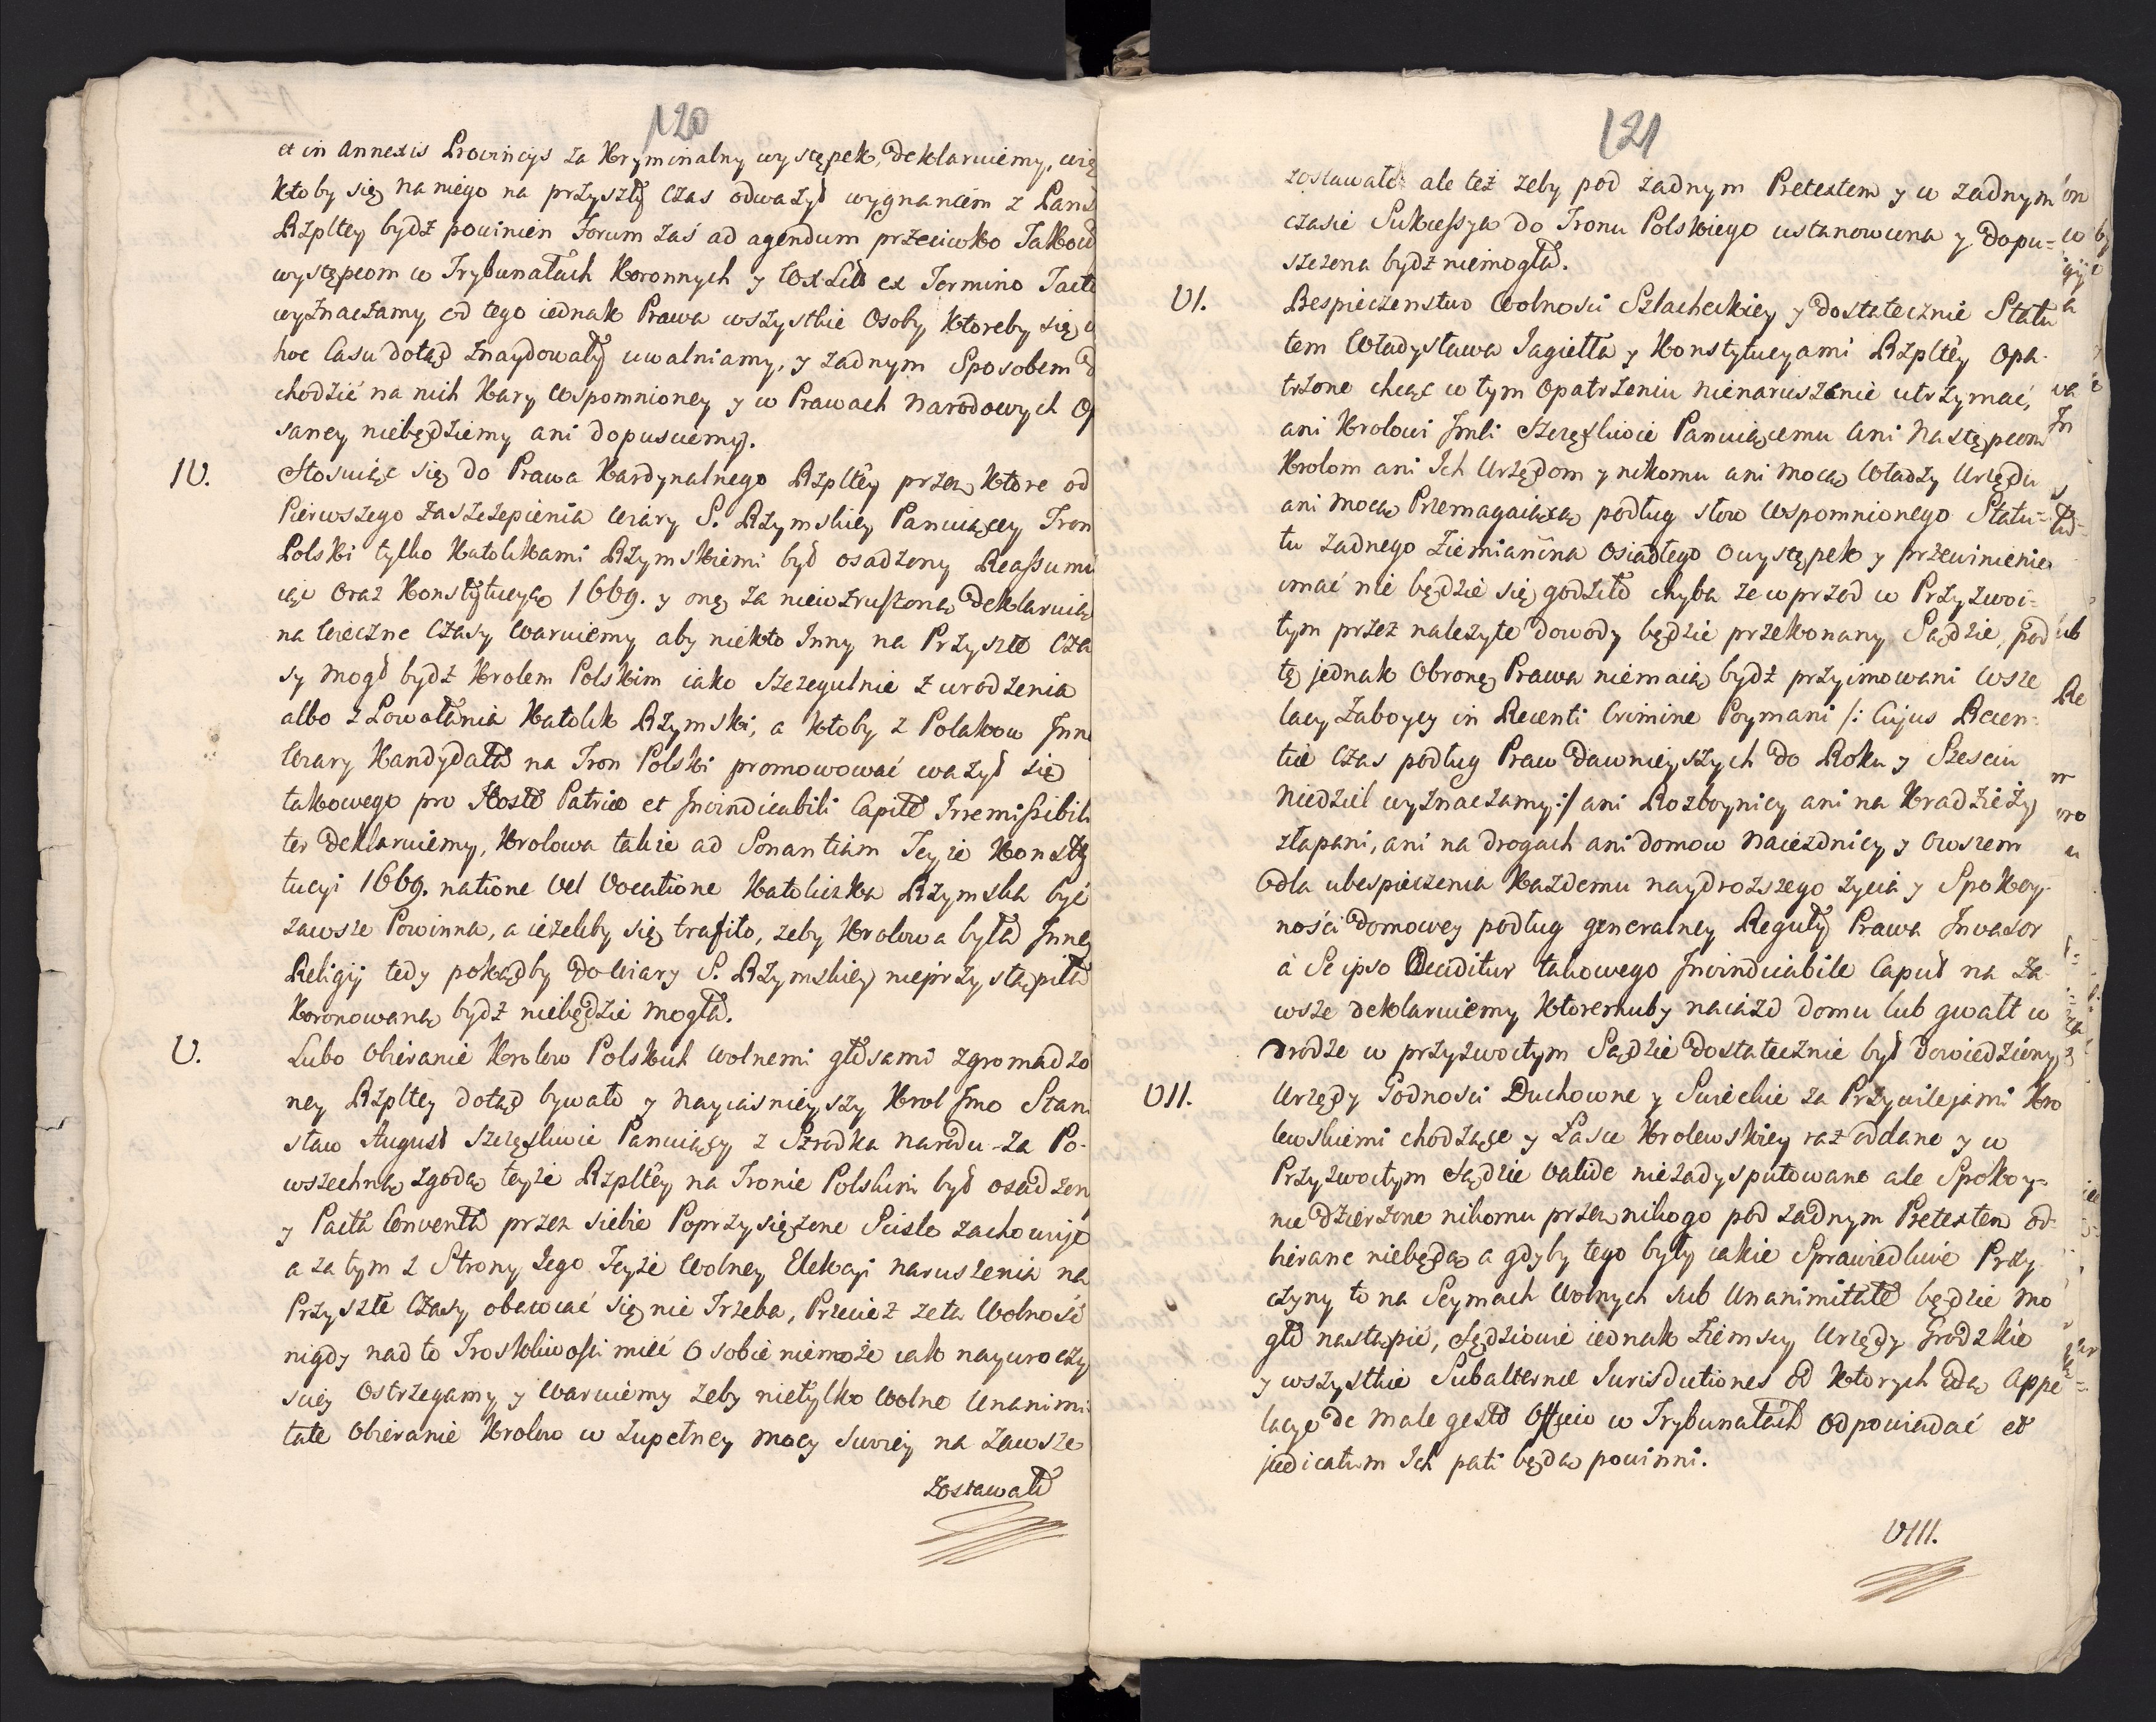 120
et in annexis Provincijs za Kryminalny występek, deklaruiemy, wię
Ktoby się na niego na przyszły czas odważył wygnaniem z Pans
Rzpltey bydź powinien Forum zaś ad agendum przeciwko Takow
występcom w Trybunałach Koronnych y WXLit ex Termino Tacto
wyznaczamy od tego iednak Prawa wszystkie Osoby Ktoreby się
hoc Casu dotąd znaydowały uwalniamy, y żadnym Sposobem
chodzić na nich Kary wspomnioney y w Prawach Narodowych Op
saney niebędziemy ani dopusciemy.
IV. Stosuiąc się do Prawa Kardynalnego Rzpltey przez Ktore od
Pierwszego zaszczepienia Wiary S. Rzymskiey Panuiący Tron
Polski tylko Katolikami Rzymskiemi był osadzony Reassumu
iąc oraz Konstytucyą 1669. y onę za niewzruszoną Deklaruiąc
na wieczne Czasy waruiemy aby niekto Inny na Przyszłe Cza
sy mogł bydź Krolem Polskim iako szczegulnie z urodzenia
albo z Powołania Katolik Rzymski, a Ktoby z Polakow Inne
Wiary Kandydata na Tron Polski promowować ważył się
takowego pro Hoste Patriae et Invindicabili Capite Irremissibili
ter Deklaruiemy, Krolowa takze ad Sonantiam Teyże Konsty
tucyi 1669. natione vel Vocatione Katoliczka Rzymska być
zawsze Powinna, a ieżeliby się trafiło, zeby Krolowa była Inney
Religij tedy pokądby do Wiary S. Rzymskiey nieprzystąpiła
Koronowaną bydź niebędzie mogła.
V. Lubo Obieranie Krolow Polskich wolnemi głosami zgromadzo
ney Rzpltey dotąd bywało y Nayiasnieyszy Krol Jmo Stani
sław August szczęsliwie Panuiący z Szrodka narodu za Po-
wszechną zgodą teyże Rzpltey na Tronie Polskim był osadzon
y Pacta Conventa przez siebie Poprzysiężone Scisle zachowuje
a zatym z Strony Jego Teyże Wolney Elekcyi naruszenia na
Przyszłe Czasy obawiać się nie Trzeba, Przecież zeta Wolność
nigdy nad to Troskliwości mieć o sobie niemoże iak nayuroczy
sciey Ostrzegamy y Waruiemy zeby nietylko Wolne Unanimi
tate Obieranie Krolow w zupełney mocy swoiey na zawsze
Zostawało
121
zostawało ale też zeby pod żadnym Pretextem y w żadnym
czasie Sukcessya do Tronu Polskiego ustanowiona y dopu=
szczona bydź niemogła.
VI. Bespieczenstwo Wolności Szlacheckiey y dostatecznie Statu
tem Władysława Jagiełła y Konstytucyami Rzpltey Opa-
trzone chcąc w tym Opatrzeniu nienaruszenie utrzymać,
ani Krolowi Jmci szczęsliwie Panuiącemu ani Następcom
Krolom ani Ich Urzędom y nikomu ani mocą Władzy Urzędu
ani mocą Przemagaiącą podług słow wspomnionego Statu=
tu żadnego Ziemianina osiadłego o występek y przewinienie
imać nie będzie się godziło chyba ze w przod w Przyzwoi=
tym przez należyte dowody będzie przekonany Sądzie, pod
tę jednak Obronę Prawa niemaią bydź przyimowani Wsze
lacy Zaboycy in Recenti Crimine Poymani /: Cujus Recen-
tiae Czas podług Praw dawnieyszych do Roku y Szesciu
Niedziel wyznaczamy :/ ani Rozboynicy ani na Kradzieży
złapani, ani na drogach ani domow Naieżdnicy y owszem
dla ubespieczenia Każdemu naydroższego życia y Spokoy-
ności domowey podług generalney Reguły Prawa Invasor
à Se ipso Occiditur takowego Invindicabile Caput na Za-
wsze deklaruiemy Ktoremuby naiazd domu lub gwałt w
drodze w przyzwoitym Sądzie dostatecznie był dowiedziony
VII. Urzędy Godności Duchowne y Swieckie za Przywilejami Kro
lewskiemi chodzące y Łasce Krolewskiey raz oddane y w
Przyzwoitym Sądzie valide niezadysputowane ale Spokoy=
nie dzierżone nikomu przez nikogo pod żadnym Pretextem od-
bierane niebędą a gdyby tego były iakie Sprawiedliwe Przy
czyny to na Seymach Wolnych sub Unanimitate będzie mo
gło nastąpić, Sędziowie iednak Ziemscy Urzędy Grodzkie
y wszystkie Subalternae Jurisdictiones od Ktorych idą Appe
lacye de male gesto Officio w Trybunałach odpowiadać et
judicatum Ich pati będą powinni.
VIII.